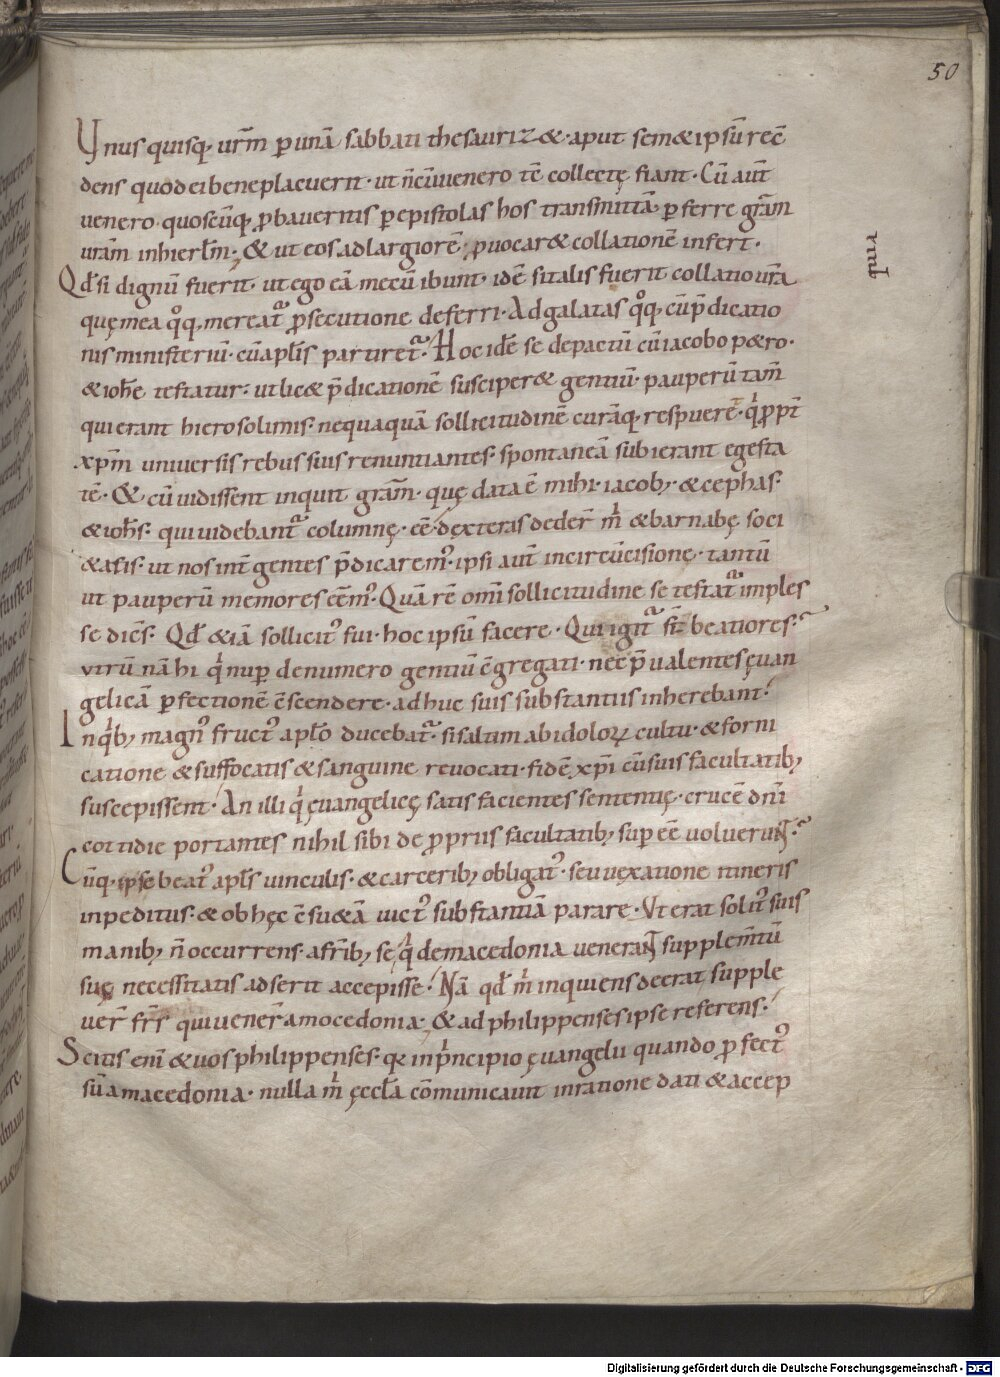 50
Vnus quisq; urm̄ p unā sabbati thesauriz&· aput sem&ipsū recō
dens quod ei bene placuerit· ut ñ cū uenero tc̄ collectę fiant· Cū aut̄
uenero· quoscūq; ꝓbaueritis p epistolas hos transmittā pferre grām
urām in hierłm· & ut eos ad largiorē ꝓuocar& collationē infert·
Qd̄ si dignū fuerit· ut ego eā mecū ibunt· idē si talis fuerit collatio ur̄a
quę mea qͦq; mereat̄ ꝓsecutione deferri· Ad galatas qͦq; cū p̄dicatio
nis ministeriū· cū apl̄is partiret̄· Hoc idē se depactū cū iacobo p&ro·
& ioħe testatur· ut lic& p̄dicationē susciper& gentiū· pauperū tam̄
qui erant hierosolimis· nequaquā sollicitudinē curāq; respuer&· qͥ ꝓpt̄
xp̄m uniuersis rebus suis renuntiantes· spontaneā subierant egesta
tē· & cū uidissent inquit grām· quę data ē mihi· iacob; & cephas·
& ioħs· qui uidebant̄ columnę· ee̅· dexteras deder̄ m̄ & barnabę soci
&atis· ut nos int̄ gentes p̄dicarem᾽· ipsi aut̄ in circūcisione· tantū
ut pauperū memores eēm᾽· Quā rē omī sollicitudine se testat̄ imples
se dicēs· Qd̄ &iā sollicit᾽ fui· hoc ipsū facere· Qui igit̄ st̄ beatiores·
utrū nā hi qͥ nup de numero gentiū c̄gregati· nec p̄ualentes ęuan
gelicā pfectionē c̄scendere· adhuc suis substantiis inherebant·
In qͥb; magn᾽ fruct᾽ apl̄o ducebat̄· si saltim ab idoloꝝ cultu· & forni
catione & suffocatis & sanguine reuocati· fidē xp̄i cū suis facultatib;
suscepissent· An illi qͥ ęuangelicę satisfacientes sententię· crucē dn̄i
cottidie portantes nihil sibi de propriis facultatib; sup eē uoluerunt·
Cūq; ipse beat᾽ apl̄s uinculis· & carcerib; obligat᾽· seu uexatione itineris
inpeditus· & ob hęc c̄su&ā uict᾽ substantiā parare· Vt erat solit᾽ suis
manib; ñ occurrens· a fr̄ib; se qͥ de macedonia uenerant supplem̄tū
suę necessitatis adserit accepisse· Nā qd̄ m̄ inquiens deerat supple
uer̄ fr̄s qui uener̄ a mocedonia· & ad philippenses ipse referens·
Scitis enī & uos philippenses· qꝛ in p̄ncipio ęuangelii quando ꝓfect᾽
sū a macedonia· nulla m̄ ęccl̄a cōmunicauit in ratione dati & accep
Digitalisierung gefördert durch die Deutsche Forschungsgemeinschaft - DFG